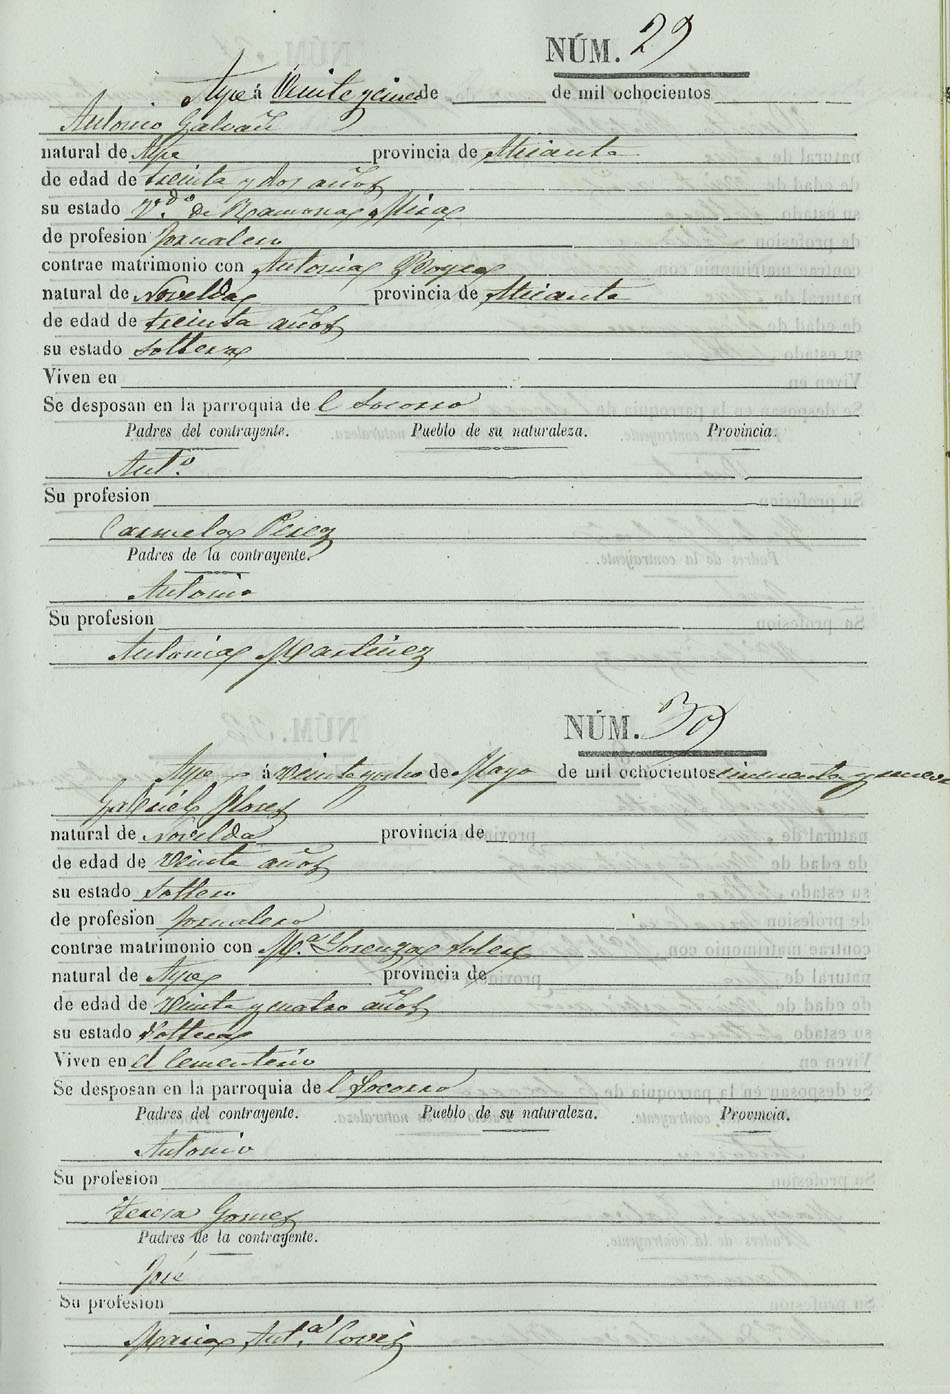 NÚM. 29
Aspe á Veinte y cinco de de mil ochocientos
Antonio Galvañ
natural de Aspe provincia de Alicante
de edad de treinta y dos años
su estado V.do de Ramona Mira
de profesion Jornalero
contrae matrimonio con Antonia
natural de Novelda provincia de Alicante
de edad de treinta años
su estado soltera
Viven en
Se desposan en la parroquia de l Socorro
Padres del contrayente. Pueblo de su naturaleza. Provincia.
Ant.o
Su profesion
Carmela Perez
Padres de la contrayente.
Antonio
Su profesion
Antonia Martinez
NÚM. 30
Aspe á veinte y ocho de Mayo de mil ochocientos cincuenta y nueve
Gabriel Flores
natural de Novelda provincia de
de edad de Veinte años
su estado Soltero
de profesion Jornalero
contrae matrimonio con M.a Lorenza Soler
natural de Aspe provincia de
de edad de veinte y cuatro años
su estado Soltera
Viven en el Cementerio
Se desposan en la parroquia de l Socorro
Padres del contrayente. Pueblo de su naturaleza. Provincia.
Antonio
Su profesion
Teresa Gomez
Padres de la contrayente.
José
Su profesion
Maria Ant.a